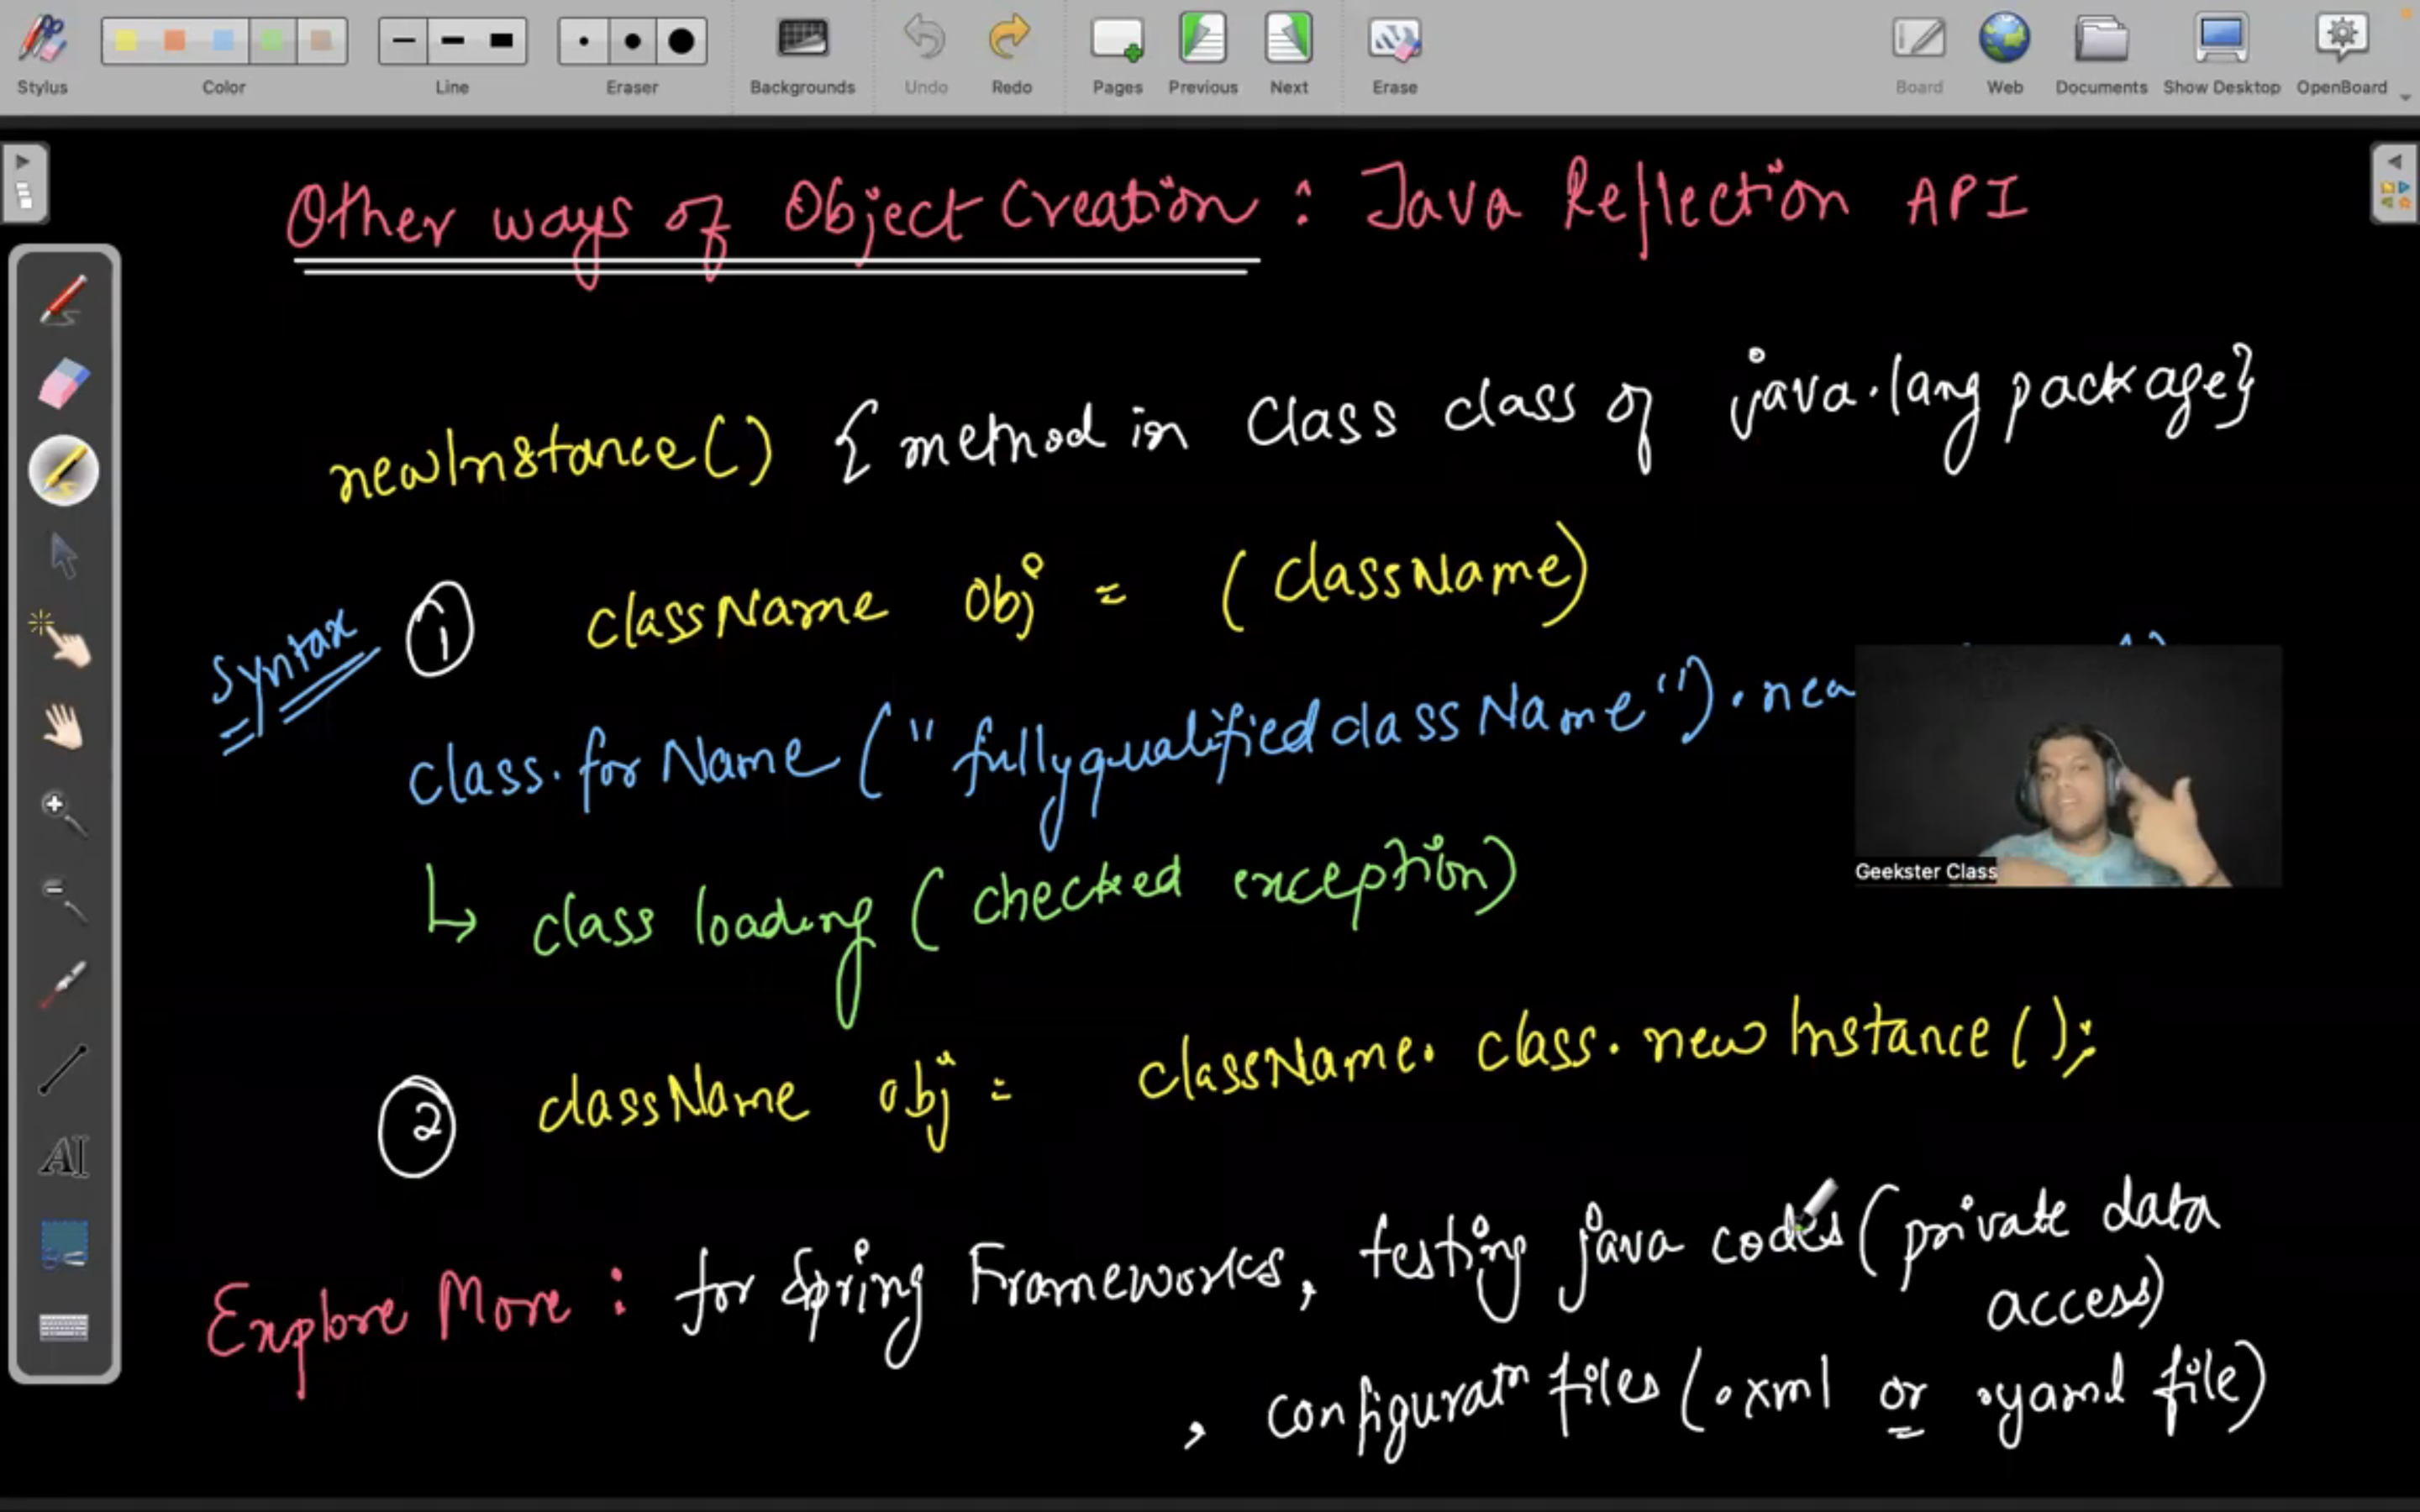 Stylus Color Line Eraser Backgrounds Undo Redo Pages Previous Next Erase Board Web Documents Show Desktop OpenBoard
Other ways of Object Creation : Java Reflection API
newInstance() { method in Class class of java.lang package}
Syntax
1 className obj = (className)
class.forName("fullyqualifiedclassName").new
↳ class loading (checked exception)
2 className obj = className.class.newInstance();
Explore More : for Spring Frameworks, testing java codes (private data
access)
, configuratn files (.xml or .yaml file)
AI
Geekster Class